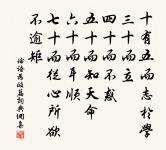 十有五而志於學
三十而立
四十而不惑
五十而知天命
六十而耳順
七十而從心所欲
不逾矩
論語為政篇